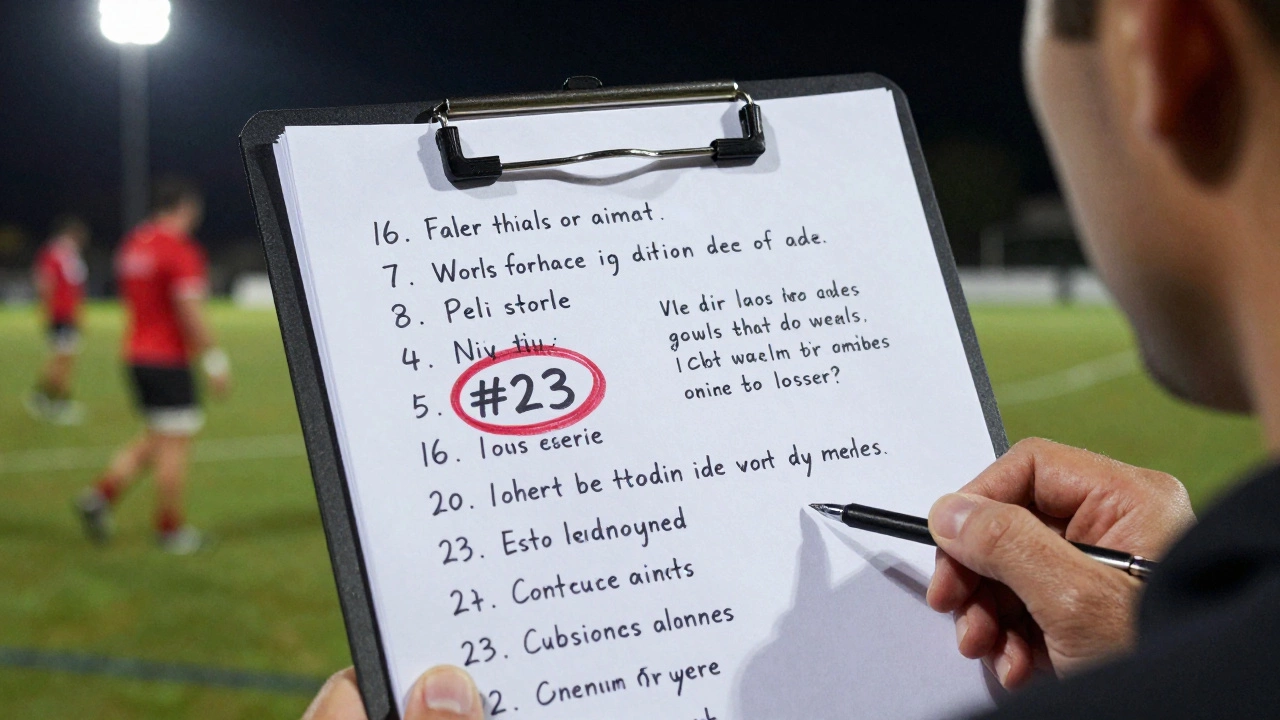 16. Faler thials or aimat.
7. Worls forhace ig dition dee of ade.
8. Peli storle
4. Niv
5. #23
16. Ious eserie
20. Iohert be Htodin ide vort dy medes.
23. Esto
24. Contcuce
23. Cubsiones alonnes
2. Cnenium
Vle dir laos ades
gowls that do weals.
I Cbt waelm omibes
onine to losser?